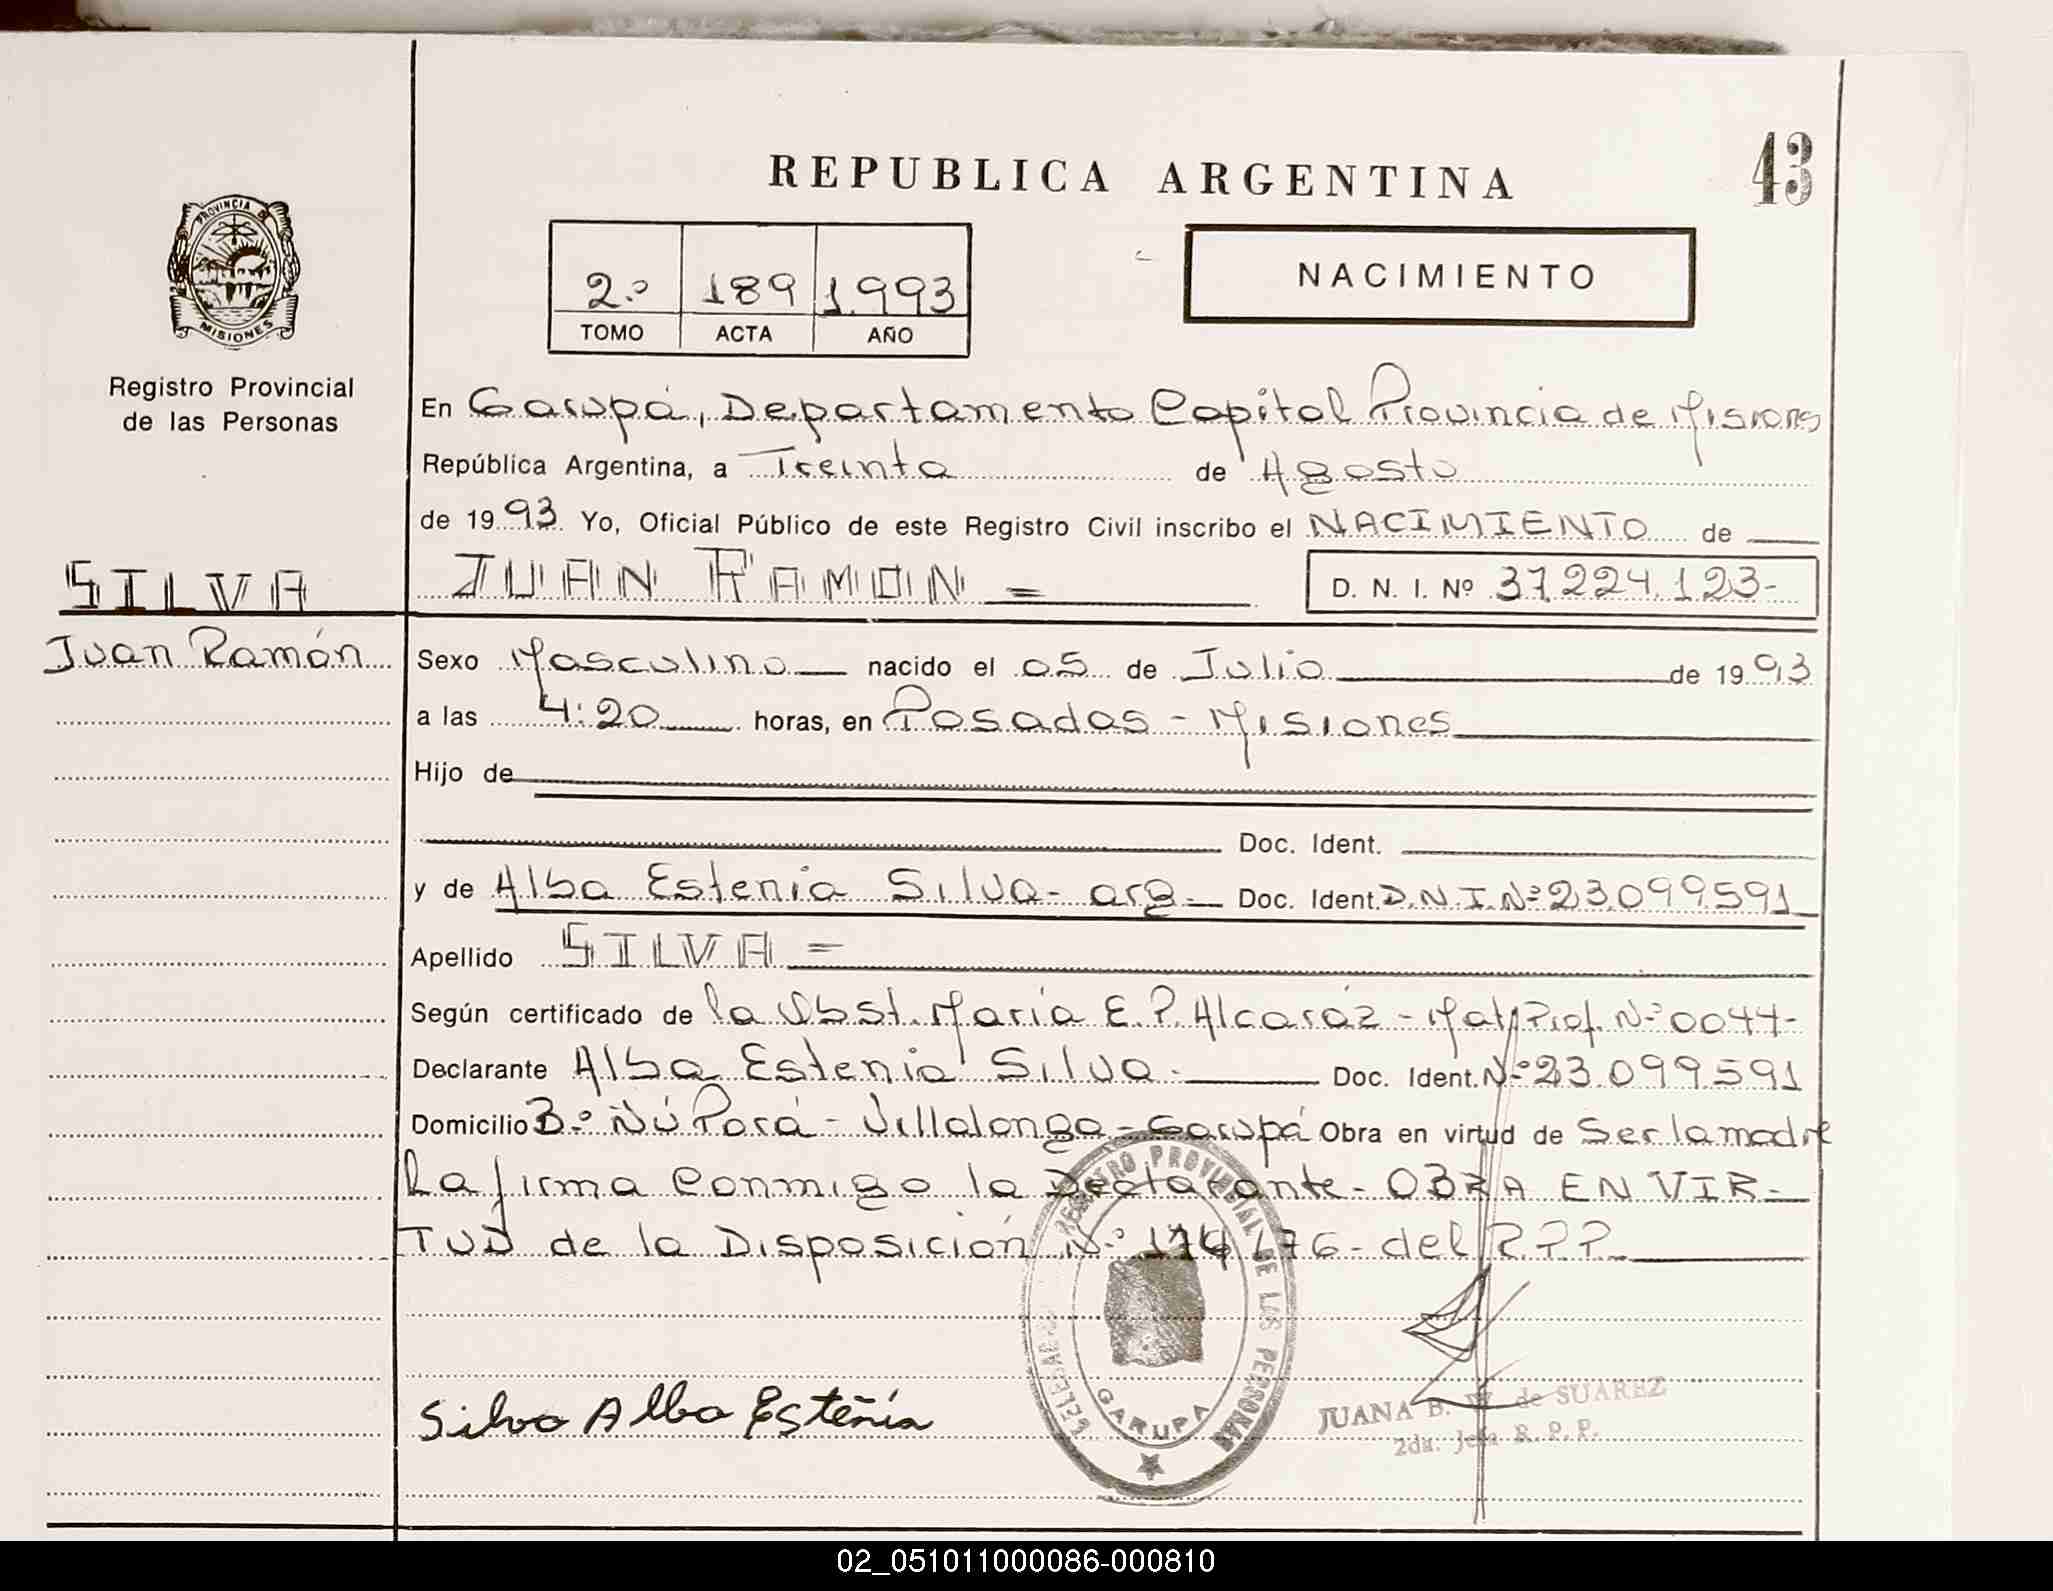 REPUBLICA ARGENTINA
43
PROVINCIA DE
MISIONES
Registro Provincial
de las Personas
2.º 189 1.993
TOMO ACTA AÑO
NACIMIENTO
En Garupá, Departamento Capital Provincia de Misiones
República Argentina, a Treinta de Agosto
de 1993 Yo, Oficial Público de este Registro Civil inscribo el NACIMIENTO de
SILVA
JUAN RAMON =
D. N. I. Nº 37.224.123-
Juan Ramón
Sexo Masculino nacido el 05 de Julio de 1993
a las 4:20 horas, en Posadas - Misiones
Hijo de
Doc. Ident.
y de Alba Estenia Silva - arg - Doc. Ident. D.N.I. Nº 23.099.591
Apellido SILVA =
Según certificado de la Obst. María E. P. Alcaráz - Mat. Prof. Nº 0044-
Declarante Alba Estenia Silva. Doc. Ident. Nº 23.099591
Domicilio Bº Ñú Porá - Villalonga - Garupá Obra en virtud de Ser la madre
La firma Conmigo la Declarante - OBRA EN VIR-
TUD de la Disposición Nº /76 - del R.P.P.
REGISTRO PROVINCIAL DE LAS PERSONAS
GARUPA
Silva Alba Esteñia
JUANA B. de SUAREZ
2da. Jefa R. P. P.
02_051011000086-000810